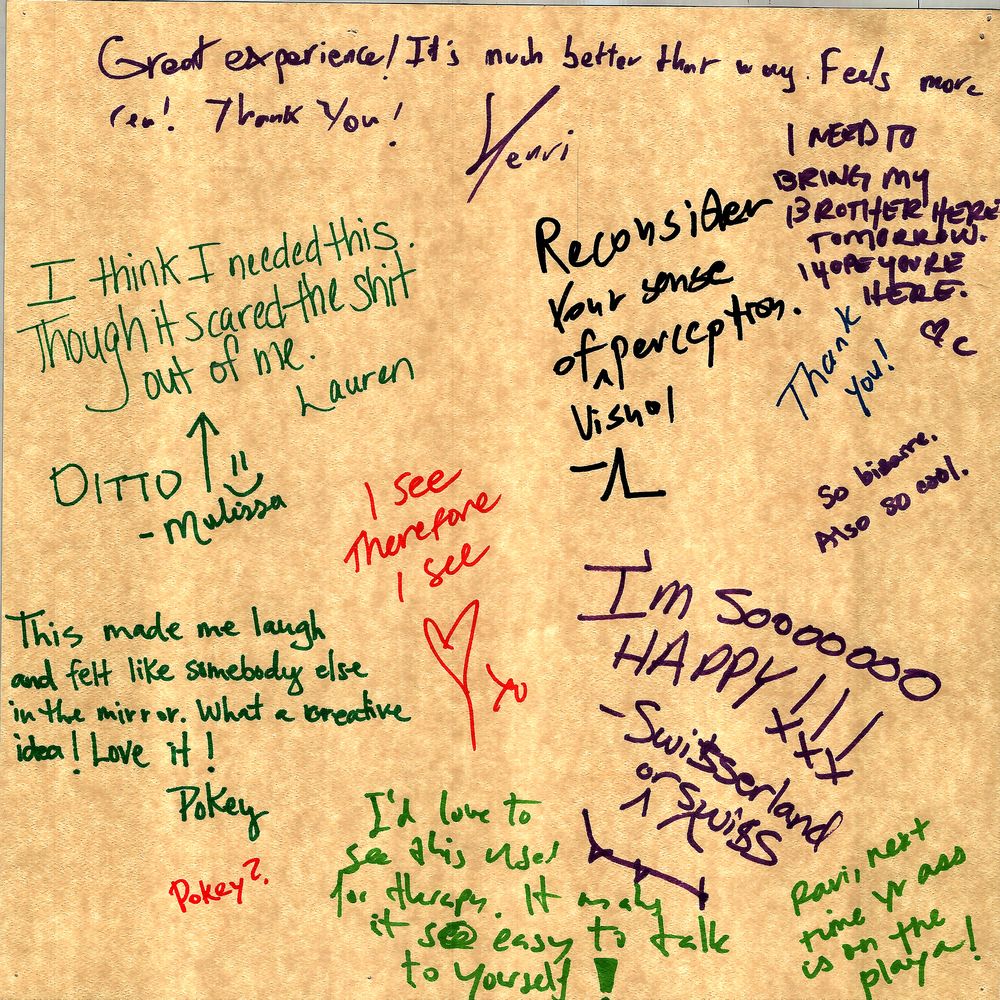 Great experience! It's much better that way. Feels more
real! Thank You!
Henri
I NEED TO
BRING MY
BROTHER HERE
TOMORROW.
I HOPE YOU'RE
HERE.
♡ C
Reconsider
Your sense
of perception.
^
Vishal
Thank
you!
I think I needed this.
Though it scared the shit
out of me.
Lauren
DITTO ↑
- Mulissa
I see
Therefore
I see
xo
So bizarre.
Also so cool.
I'm Soooooooo
HAPPY!!!
xxx
- Switsserland
or swigs
^
This made me laugh
and felt like somebody else
in the mirror. What a creative
idea! Love it!
Pokey
Pokey?
I'd love to
see this used
for therapy. It makes
it so easy to talk
to yourself!
Ravi, next
time yr ass
is on the
playa!